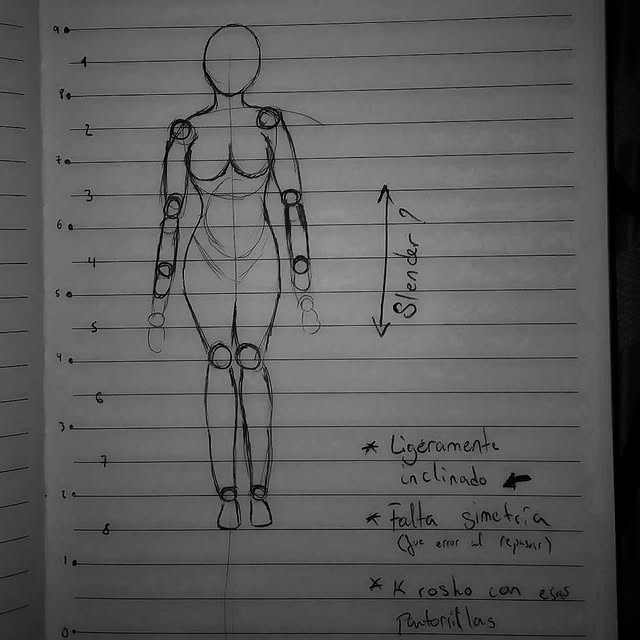 9
1
8
2
7
3
6
4
5
5
4
6
3
7
2
8
1
0
Slender ?
* Ligeramente
inclinado
* Falta simetría
(fue error al repasar)
* K rosho con esas
pantorrillas